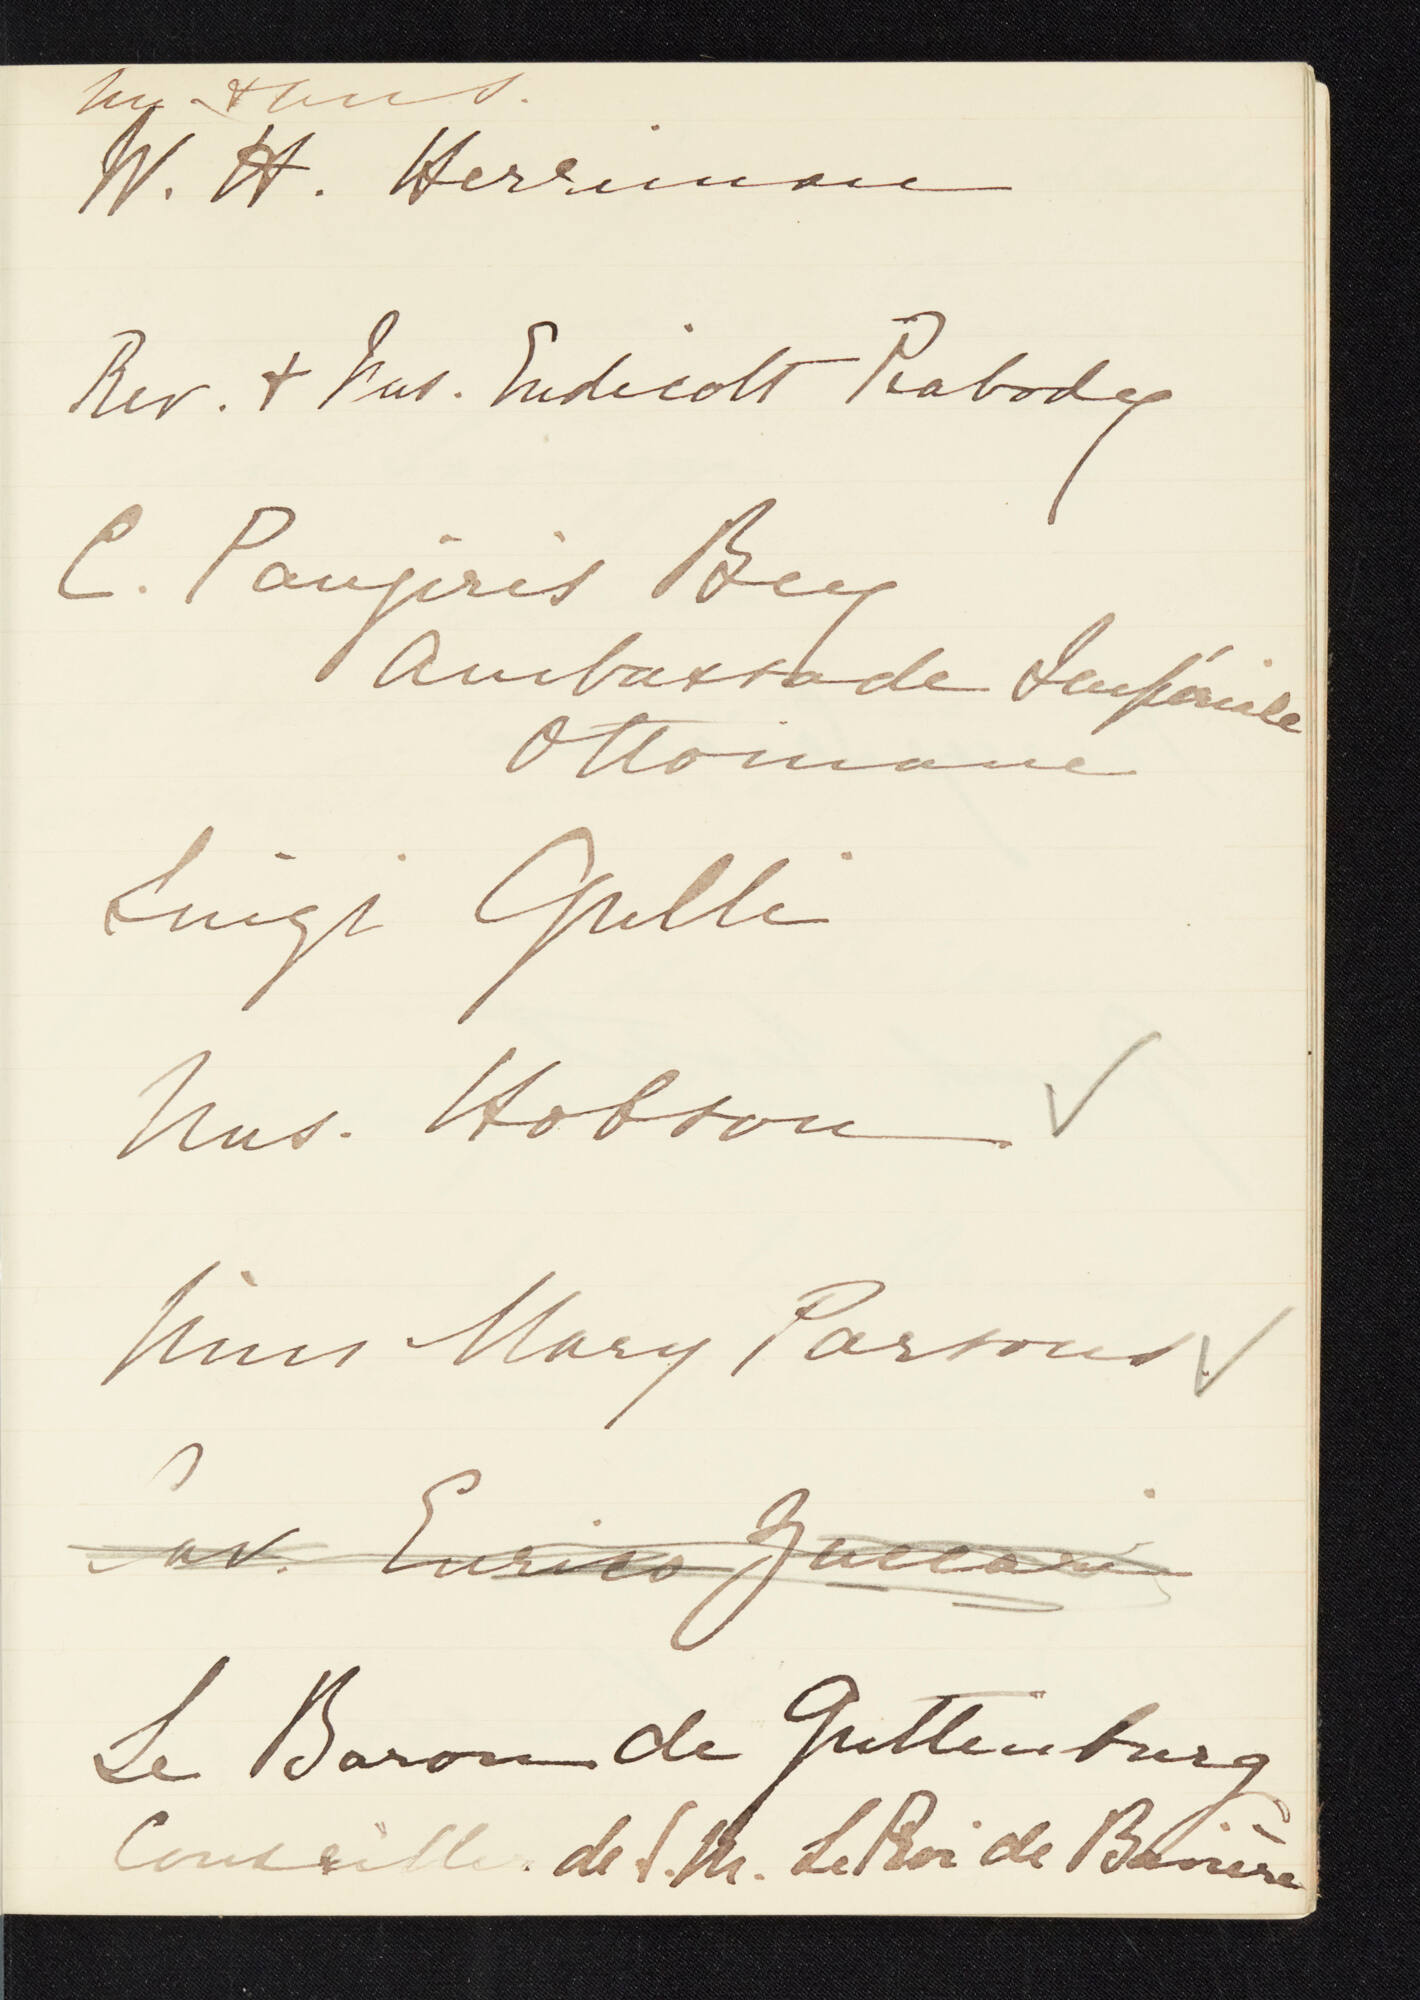 Mr & Mrs.
W. H. Herriman
Rev. & Mrs. Endicott Peabody
C. Panjiris Bey
Ambassade Impériale
Ottomane
Luigi Gulli
Mrs. Hobson ✓
Miss Mary Parsons ✓
Cav. Enrico Zuccari
Le Baron de Guttenburg
Conseiller de S. M. Le Roi de Bavière